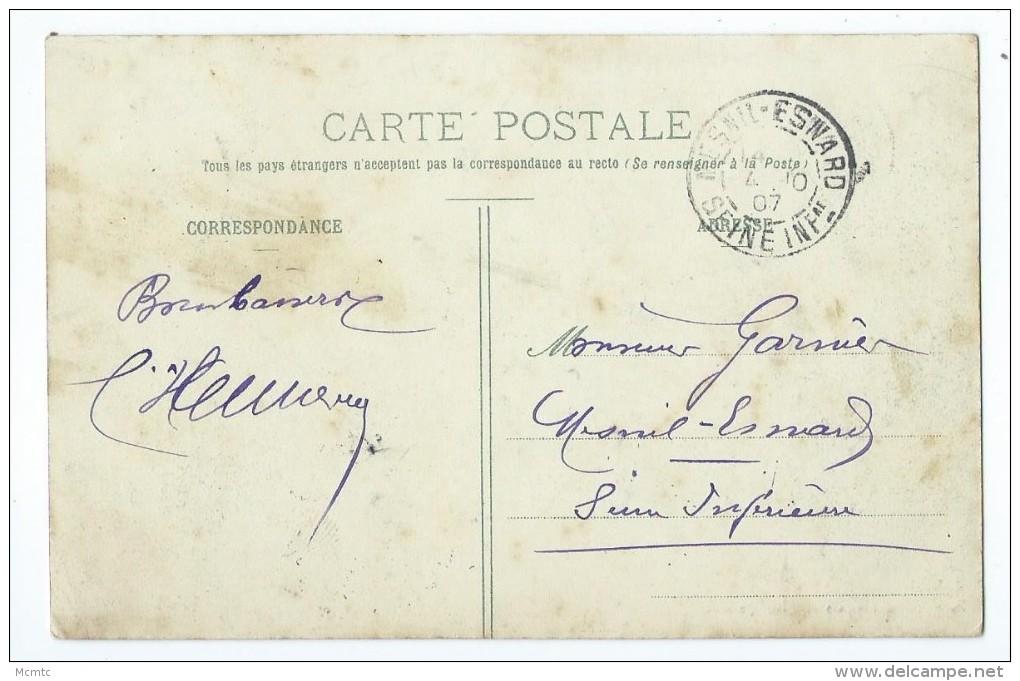 CARTE POSTALE
Tous les pays étrangers n'acceptent pas la correspondance au recto (Se renseigner à la Poste)
MESNIL-ESNARD
4 10
07
SEINE INFRE
CORRESPONDANCE
ADRESSE
Monsieur Garnier
Mesnil-Esnard
Seine Inférieure
Mcmtc
delcampe.net